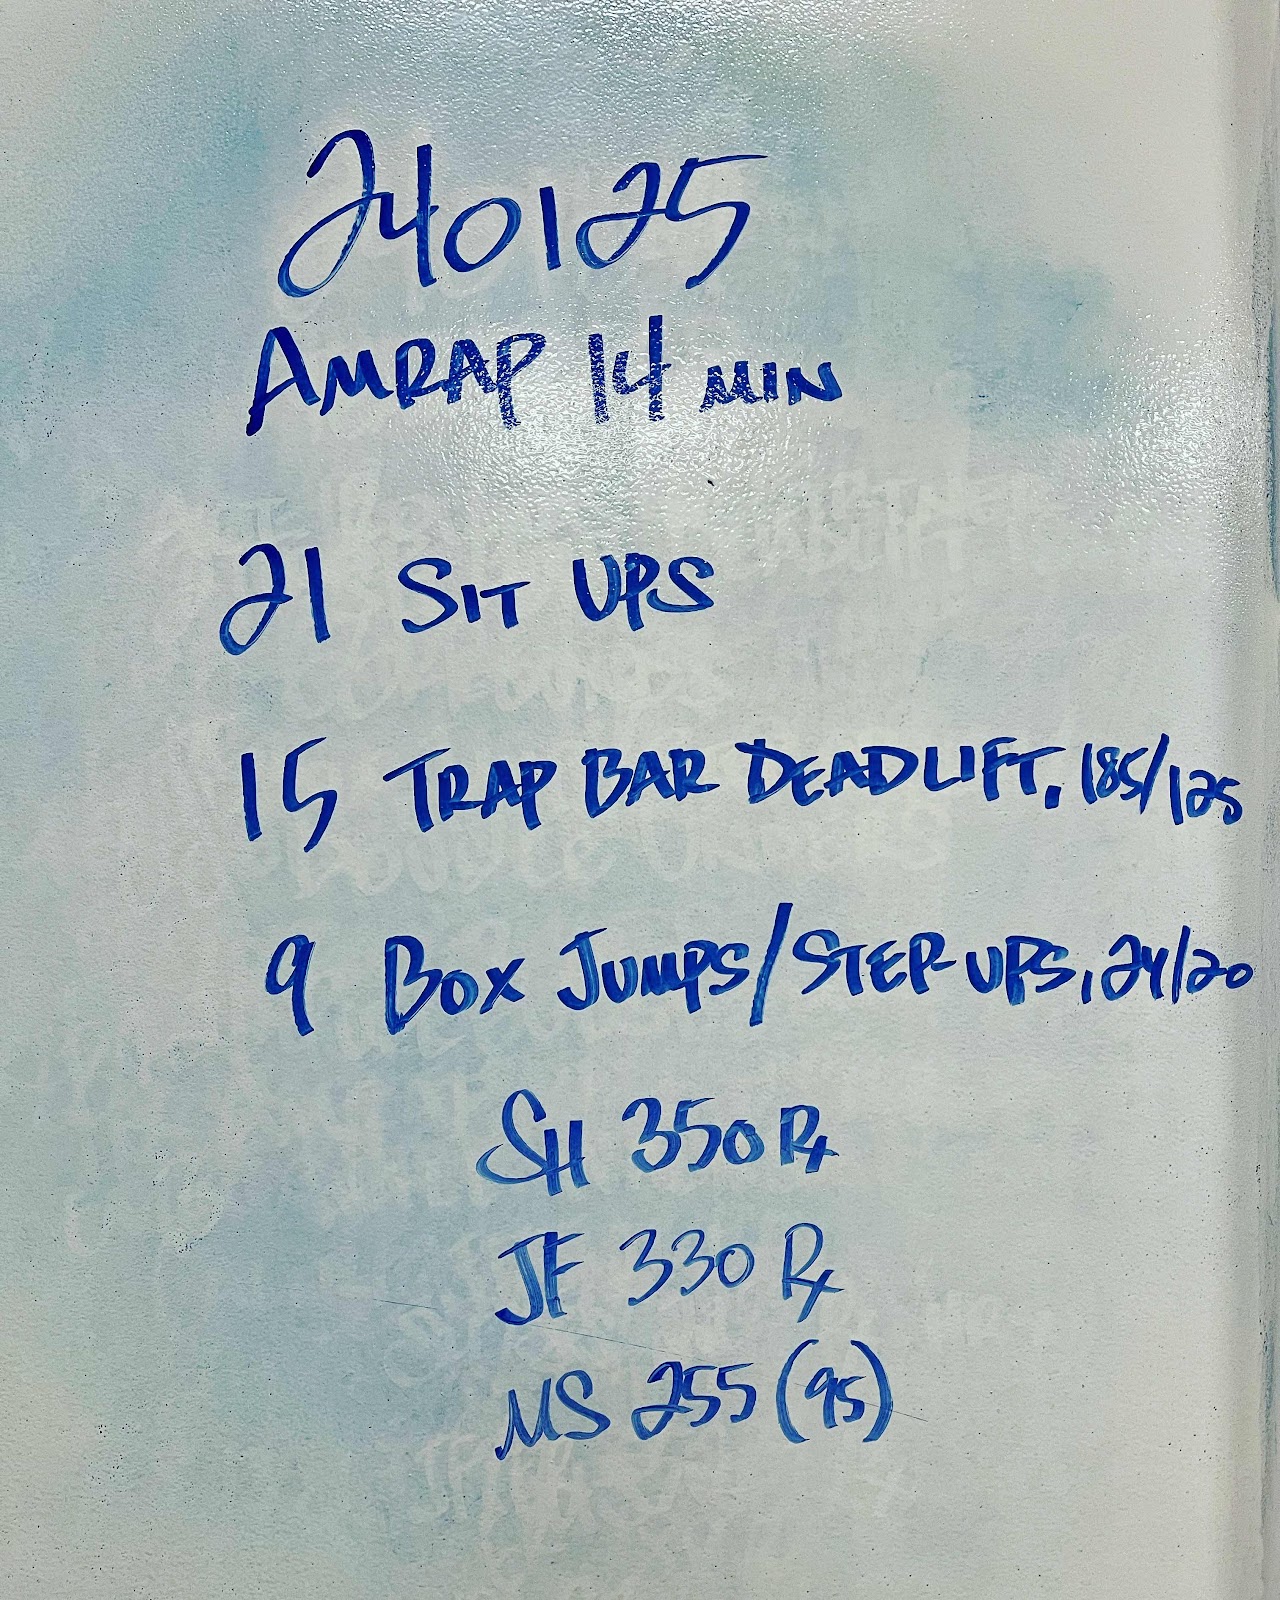 240125
AMRAP 14 MIN
21 SIT UPS
15 TRAP BAR DEADLIFT, 185/125
9 BOX JUMPS/STEP UPS, 24/20
SH 350 Rx
JF 330 Rx
MS 255 (95)